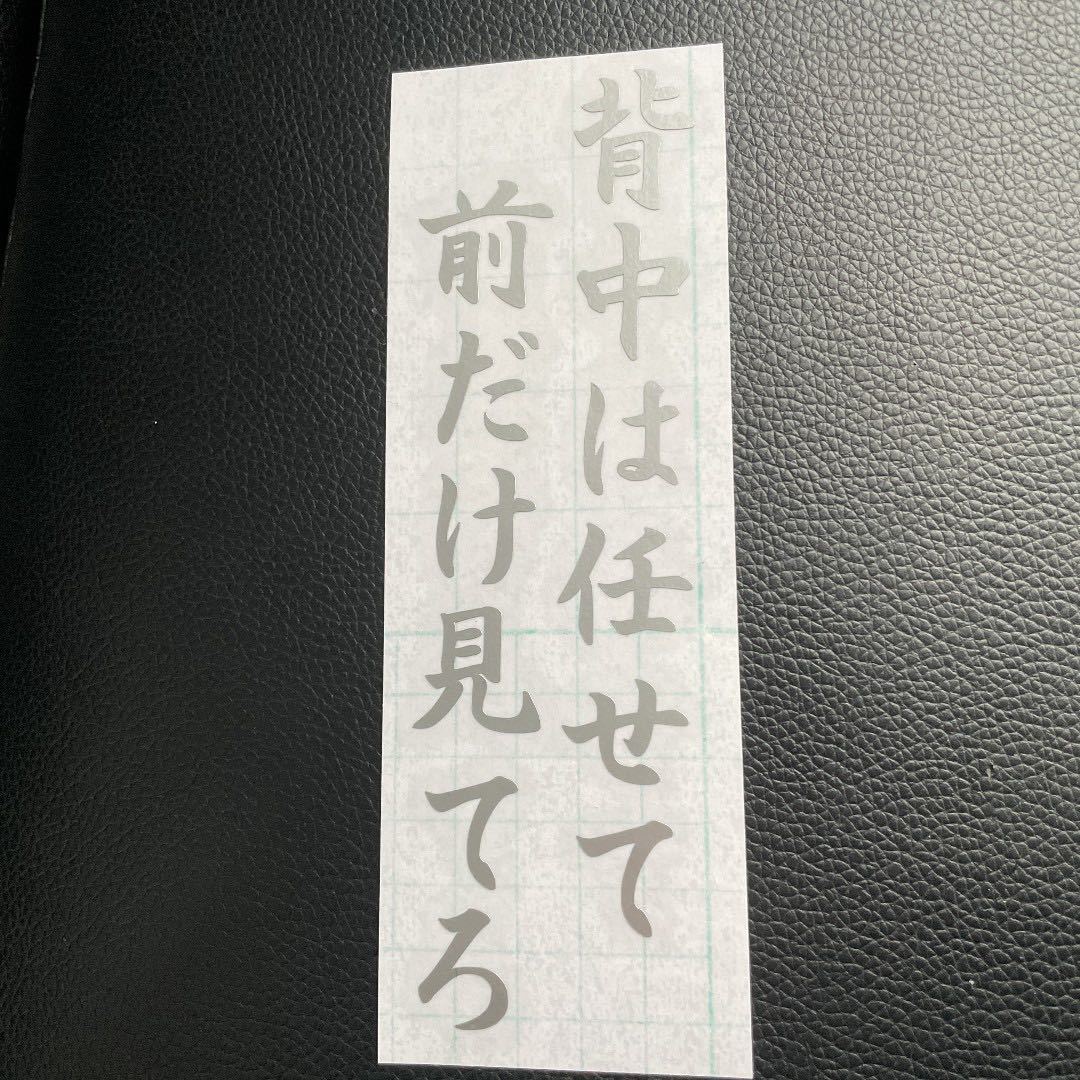 背中は任せて
前だけ見てろ